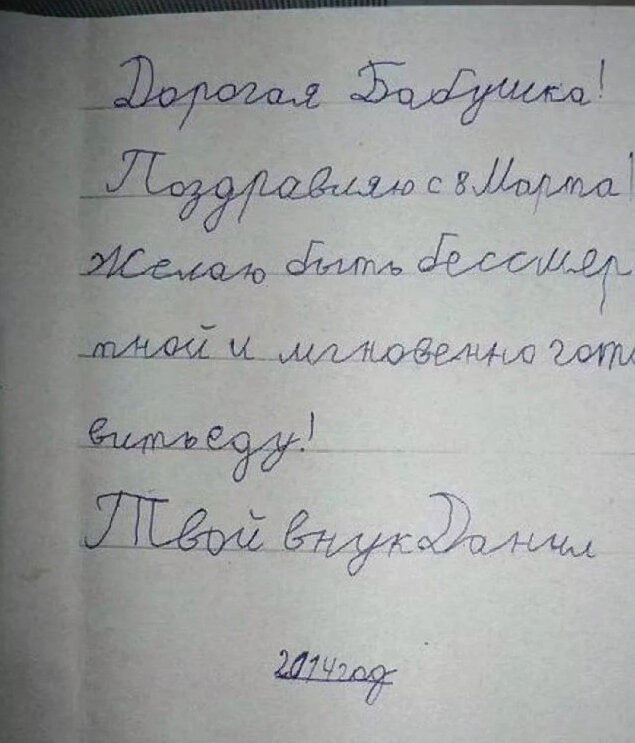 Дорогая Бабушка!
Поздравляю с 8 Марта!
Желаю быть бессмер
тной и мгновенно гото
вить еду!
Твой внук Данил
2014 год